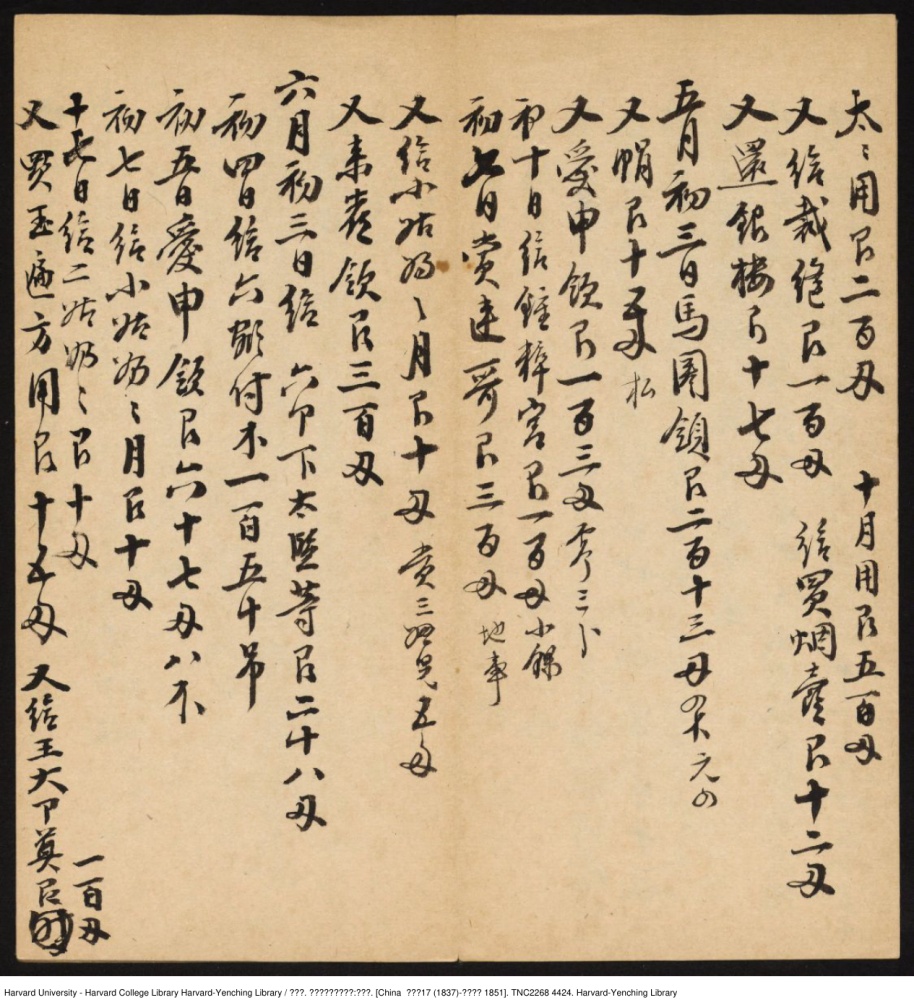 太〻用艮二百両 十月用艮五百両
又给裁缝艮一百両 给買烟壶艮十二両
又還銀楼艮十七両
五月初三日馬圈領艮二百十三両
又艮十五両 松
又愛申領艮一百三両
初十日给鍾粹宫艮一百両小
初七日賞連哥艮三百両 地事
又给小姑奶〻月艮十両 賞三妞児五両
又来喜領艮三百両
六月初三日给 六卩下太監等艮二十八両
初四日给六 付木一百五十吊
初五日愛申領艮六十七両八
初七日给小姑奶〻月艮十両
十七日给二姑奶〻艮十両
又買玉 方用艮十五両 又给王大卩 艮 一百両
Harvard University - Harvard College Library Harvard-Yenching Library / ???. ?????????:???. [China ???17 (1837)-???? 1851]. TNC2268 4424. Harvard-Yenching Library